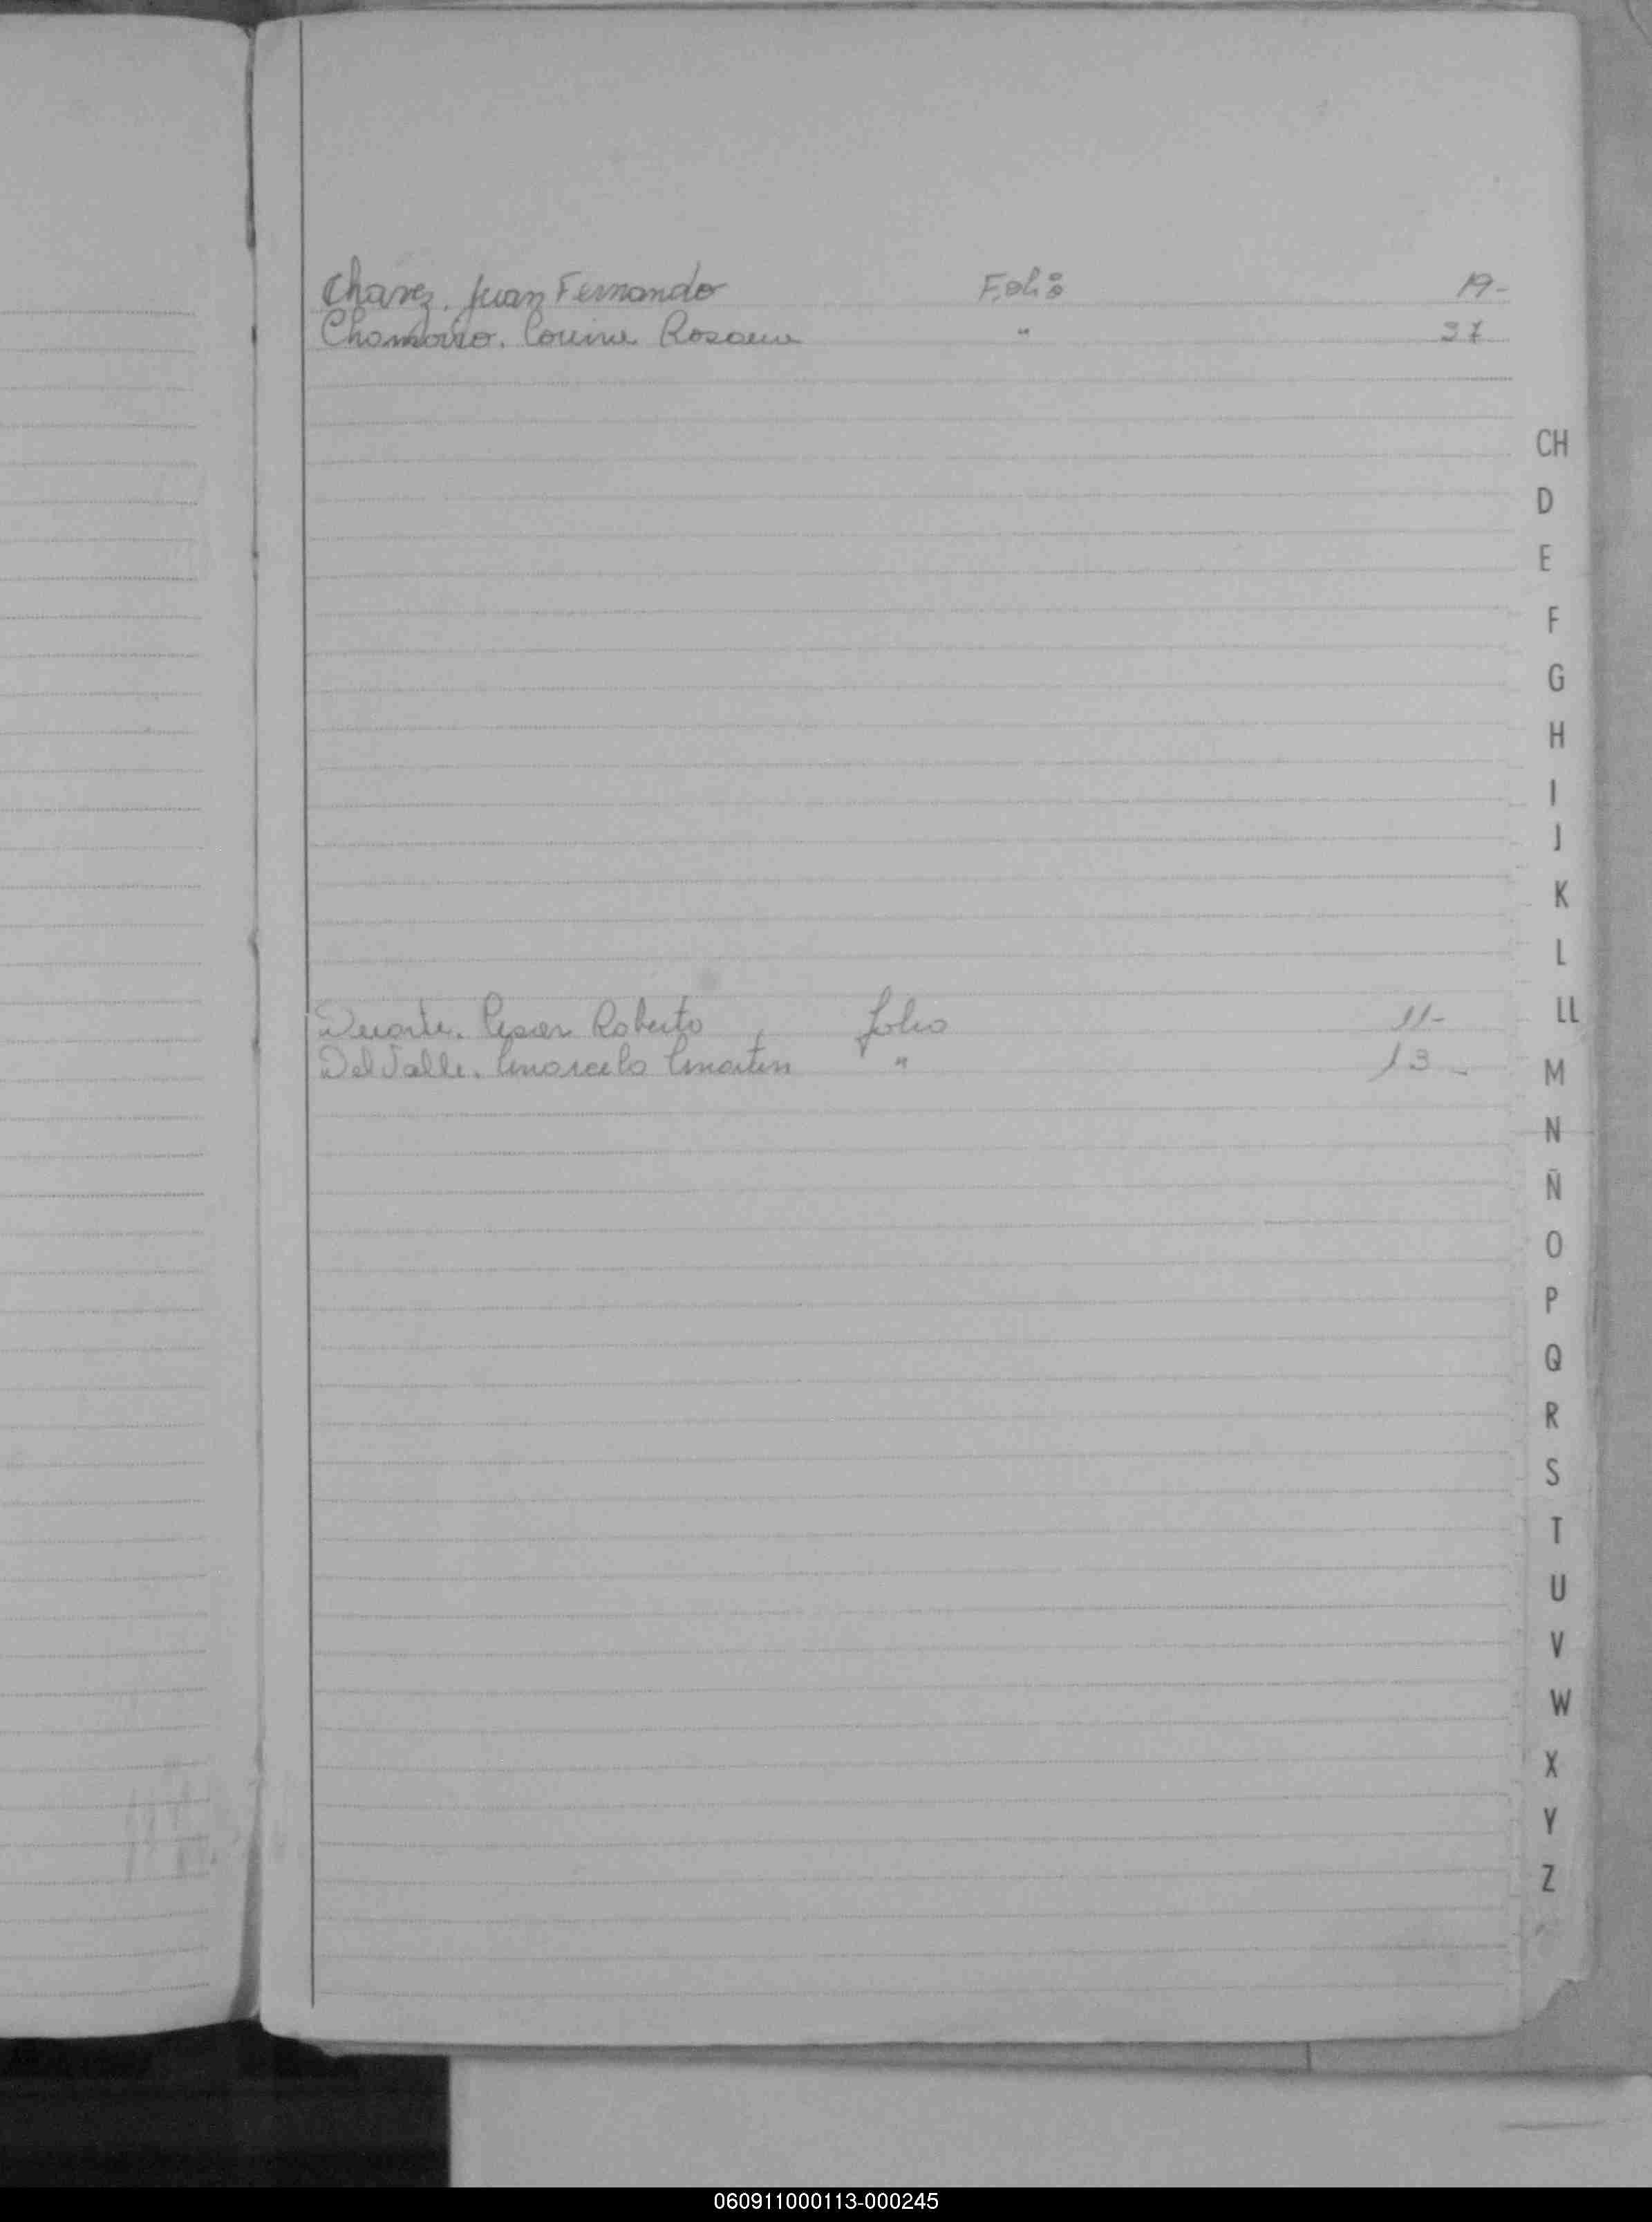 Chavez. Juan Fernando Folio 19-
Chamorro. Corina Rosana " 37
CH
D
E
F
G
H
I
J
K
L
Duarte. Cesar Roberto folio 11-
LL
Del Valle. Marcelo Martin " 13-
M
N
Ñ
O
P
Q
R
S
T
U
V
W
X
Y
Z
060911000113-000245